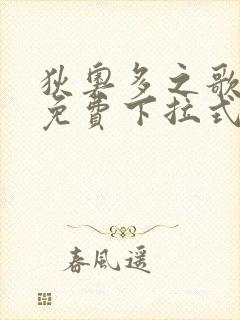 狄奧多之歌
免費下拉式
春風遥